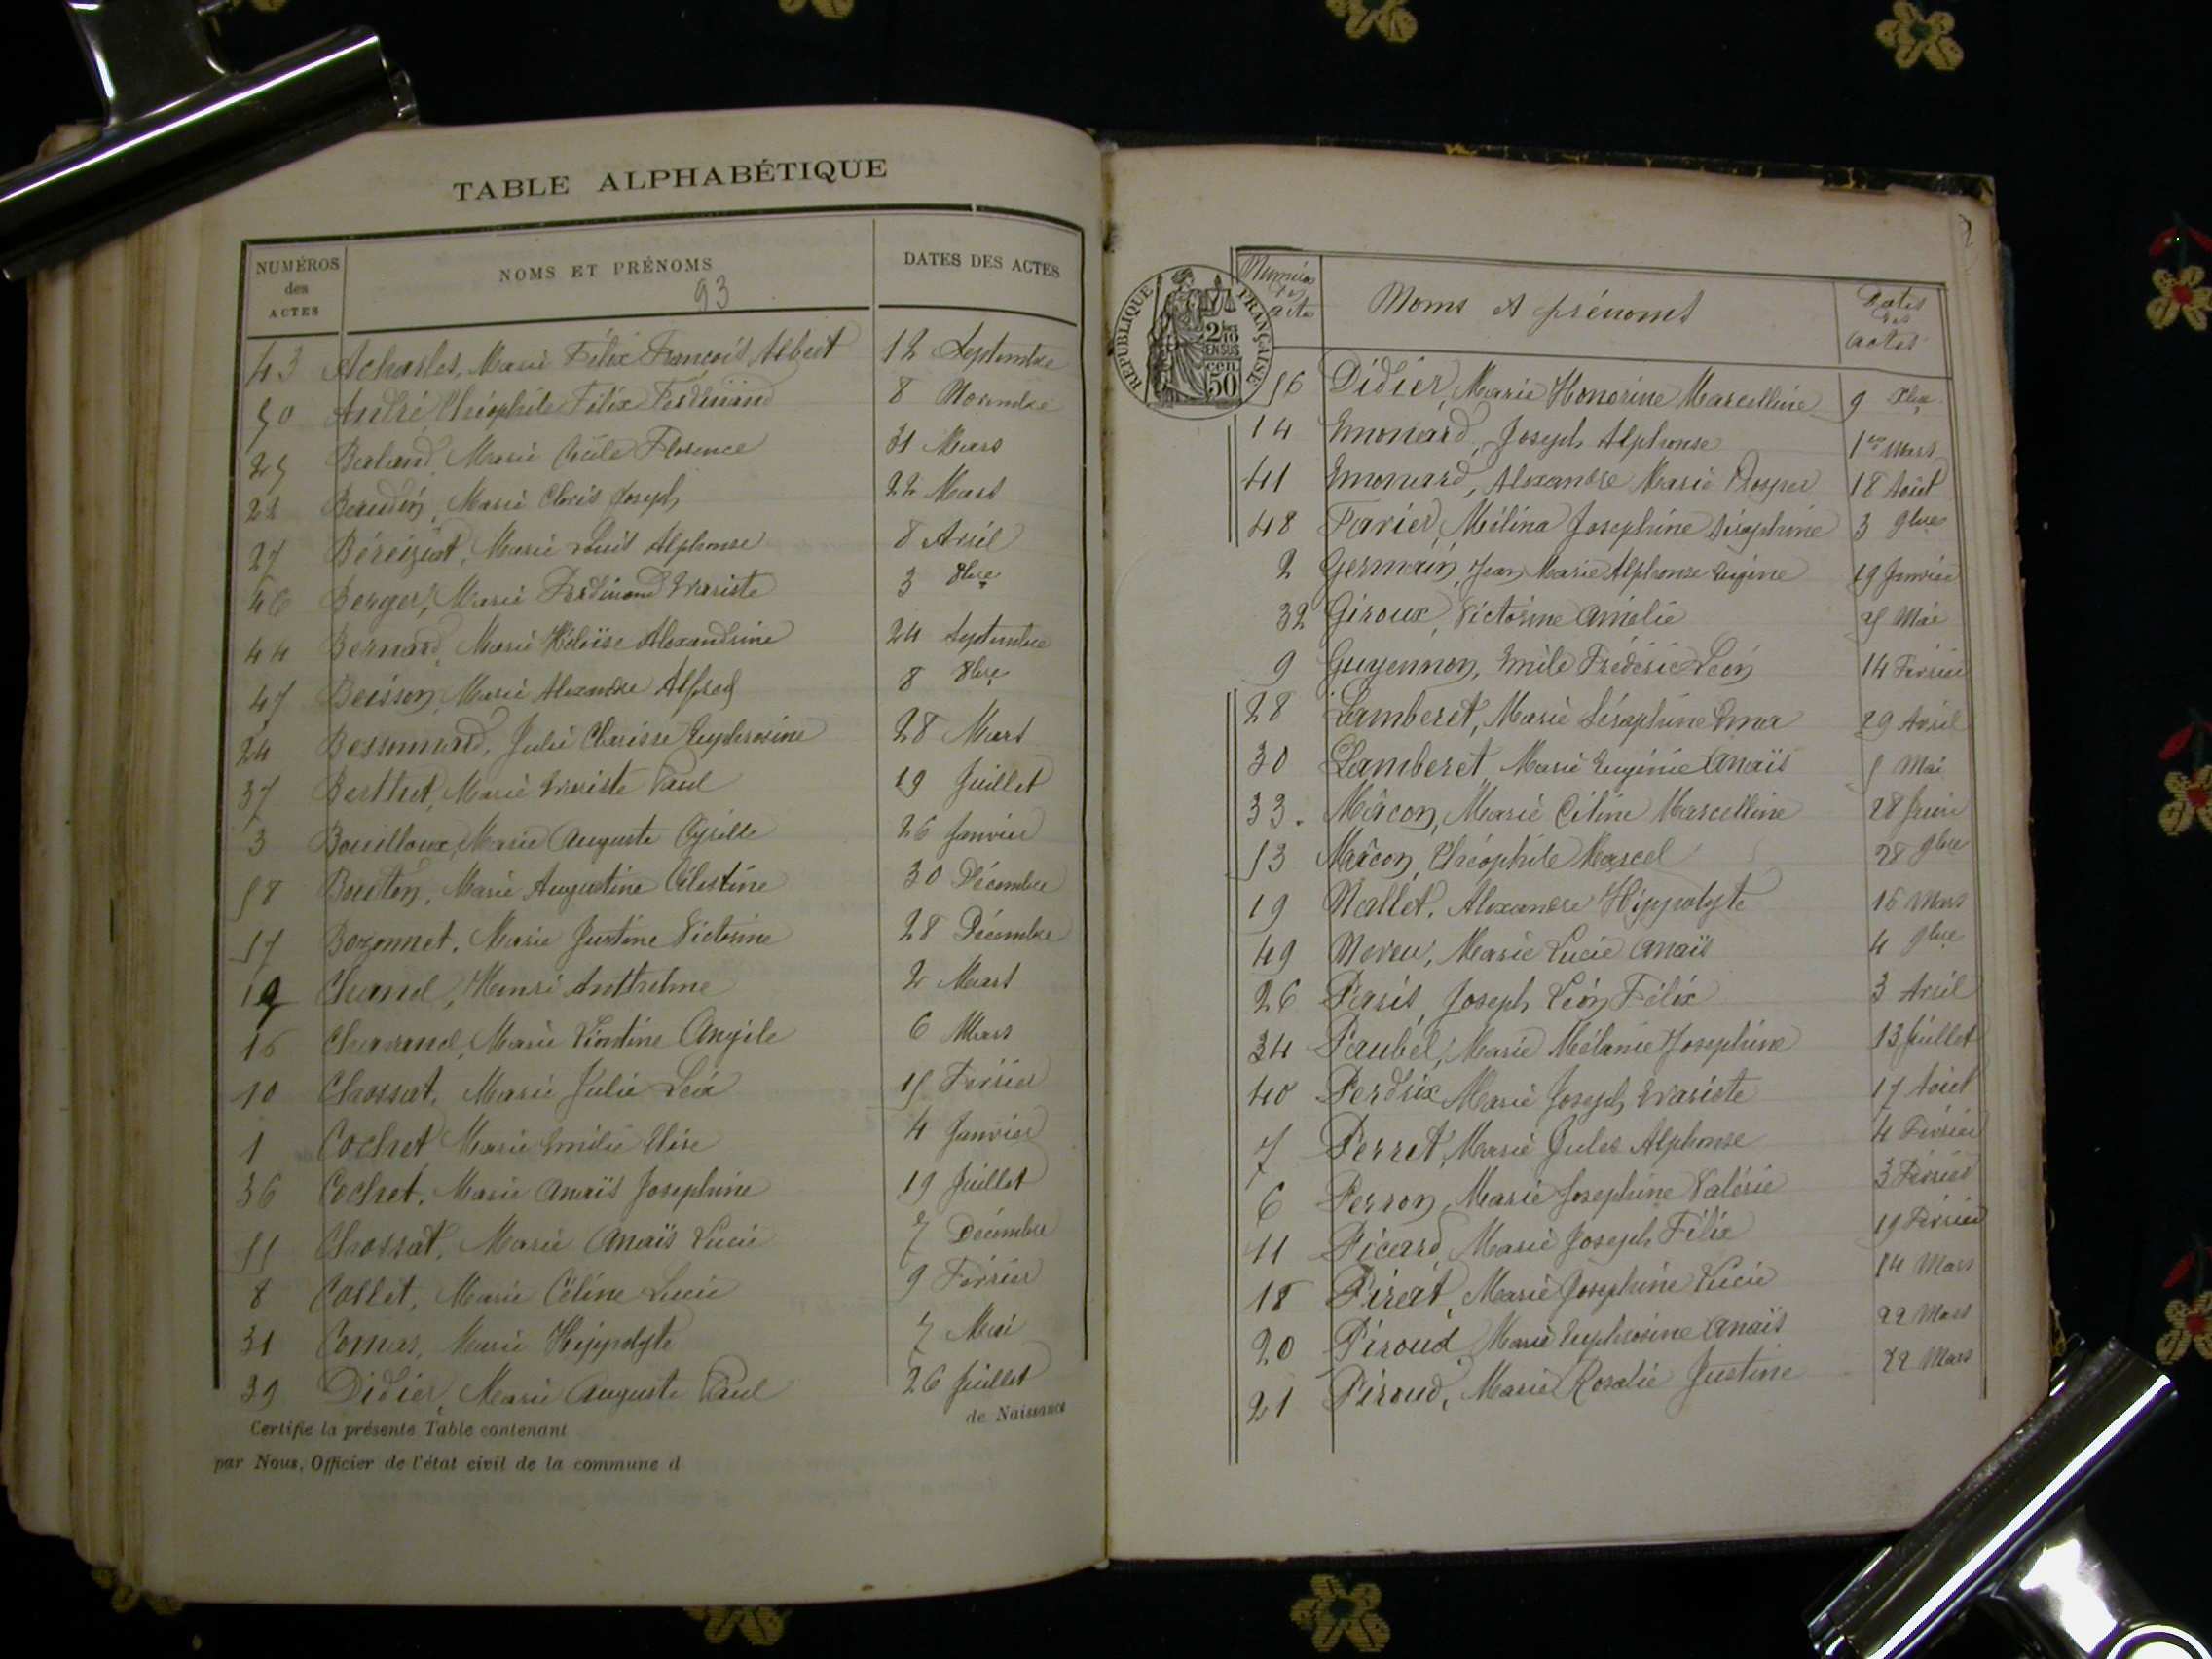 TABLE ALPHABÉTIQUE
NUMÉROS des ACTES NOMS ET PRÉNOMS DATES DES ACTES
93
43 Acharles, Marie Félix François Albert 12 Septembre
50 André, Théophile Félix Ferdinand 8 Novembre
25 Marie Cécile Florence 31 Mars
22 Baudin, Marie Clovis Joseph 22 Mars
27 Béréiziat, Marie Louis Alphonse 8 Avril
46 Berger, Marie Ferdinand Evariste 3 8bre
44 Bernard, Marie Héloïse Alexandrine 24 Septembre
47 Marie Alexandre Alfred 8 8bre
24 Bessonnard, Julie Clarisse Euphrosine 28 Mars
37 Berthet, Marie Evariste Paul 19 Juillet
3 Bouilloux, Marie Auguste Cyrille 26 Janvier
58 Bouton, Marie Augustine Célestine 30 Décembre
57 Bozonnet, Marie Justine Victorine 28 Décembre
Chanel, Henri Anthelme 2 Mars
16 Marie Léontine Angèle 6 Mars
10 Chossat, Marie Julie Léa 15 Février
1 Cochet Marie Emilie Elise 4 Janvier
36 Cochet, Marie Anaïs Josephine 19 Juillet
55 Chossat, Marie Anaïs Lucie 7 Décembre
8 Collet, Marie Céline Lucie 9 Février
31 Comas, Marie Hippolyte 7 Mai
39 Didier, Marie Auguste Paul 26 Juillet
Certifie la présente Table contenant de Naissance
par Nous, Officier de l'état civil de la commune d
2
RÉPUBLIQUE FRANÇAISE
2/10 EN SUS
50 cen
Numéros des actes Noms et prénoms Dates des actes
56 Didier, Marie Honorine Marcelline 9 Xbre
14 Emonard, Joseph Alphonse 1er Mars
41 Emonard, Alexandre Marie Prosper 18 Août
48 Favier, Mélina Josephine Séraphine 3 9bre
2 Germain, Jean Marie Alphonse Eugène 19 Janvier
32 Giroux, Victorine Amélie 25 Mai
9 Guyennon, Emile Frédéric Léon 14 Février
28 Lamberet, Marie Séraphine Ema 29 Avril
30 Lamberet, Marie Eugénie Anaïs 5 Mai
33. Mâcon, Marie Céline Marcelline 28 Juin
53 Mâcon, Théophile Marcel 28 9bre
19 Nallet, Alexandre Hippolyte 16 Mars
49 Neveu, Marie Lucie Anaïs 4 9bre
26 Paris, Joseph Léon Félix 3 Avril
34 Paubel, Marie Mélanie Josephine 13 Juillet
40 Perdrix Marie Joseph Evariste 17 Août
7 Perret, Marie Jules Alphonse 4 Février
6 Perron, Marie Josephine Valérie 3 Février
11 Picard, Marie Joseph Félix 19 Février
18 Pirat, Marie Josephine Lucie 14 Mars
20 Piroud, Marie Euphrosine Anaïs 22 Mars
21 Piroud, Marie Rosalie Justine 22 Mars